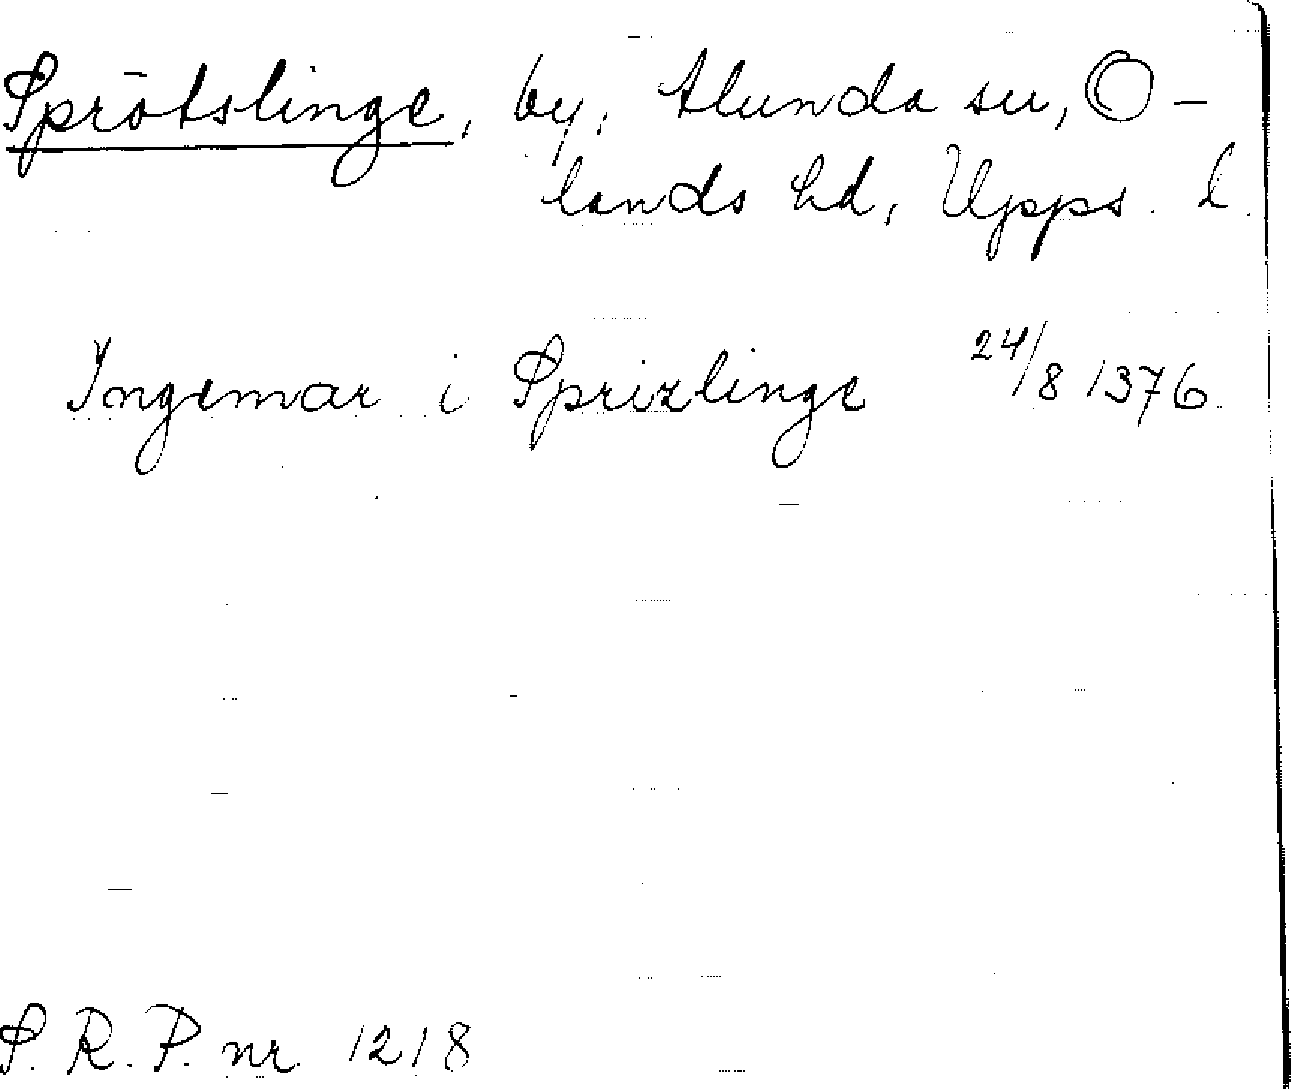 Sprötslinge, by, Alunda sn, O-
lands hd, Upps. l.
Ingemar i Sprizlinge 24/8 1376
S. R. P. nr 1218